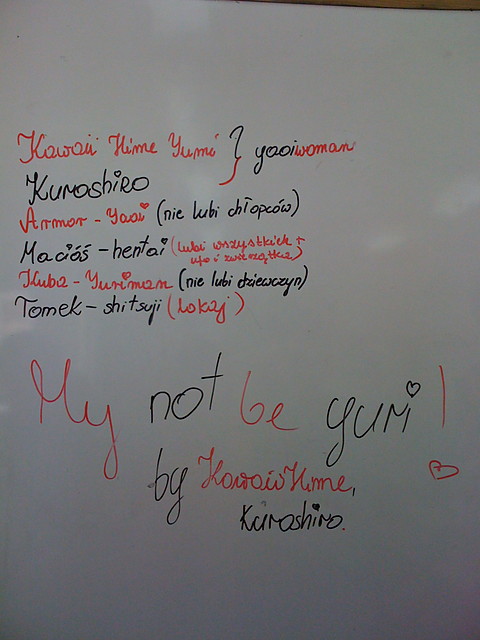 Kawaii Hime Yumi } yaoiwoman
Kuroshiro
Armor - Yaoi (nie lubi chłopców)
Macióś - hentai (lubi wszystkich +
ufo i zwierzątka)
Kuba - Yuriman (nie lubi dziewczyn)
Tomek - shitsuji (Lokaj)
My not be yuri!
by Kawaii Hime,
Kuroshiro.